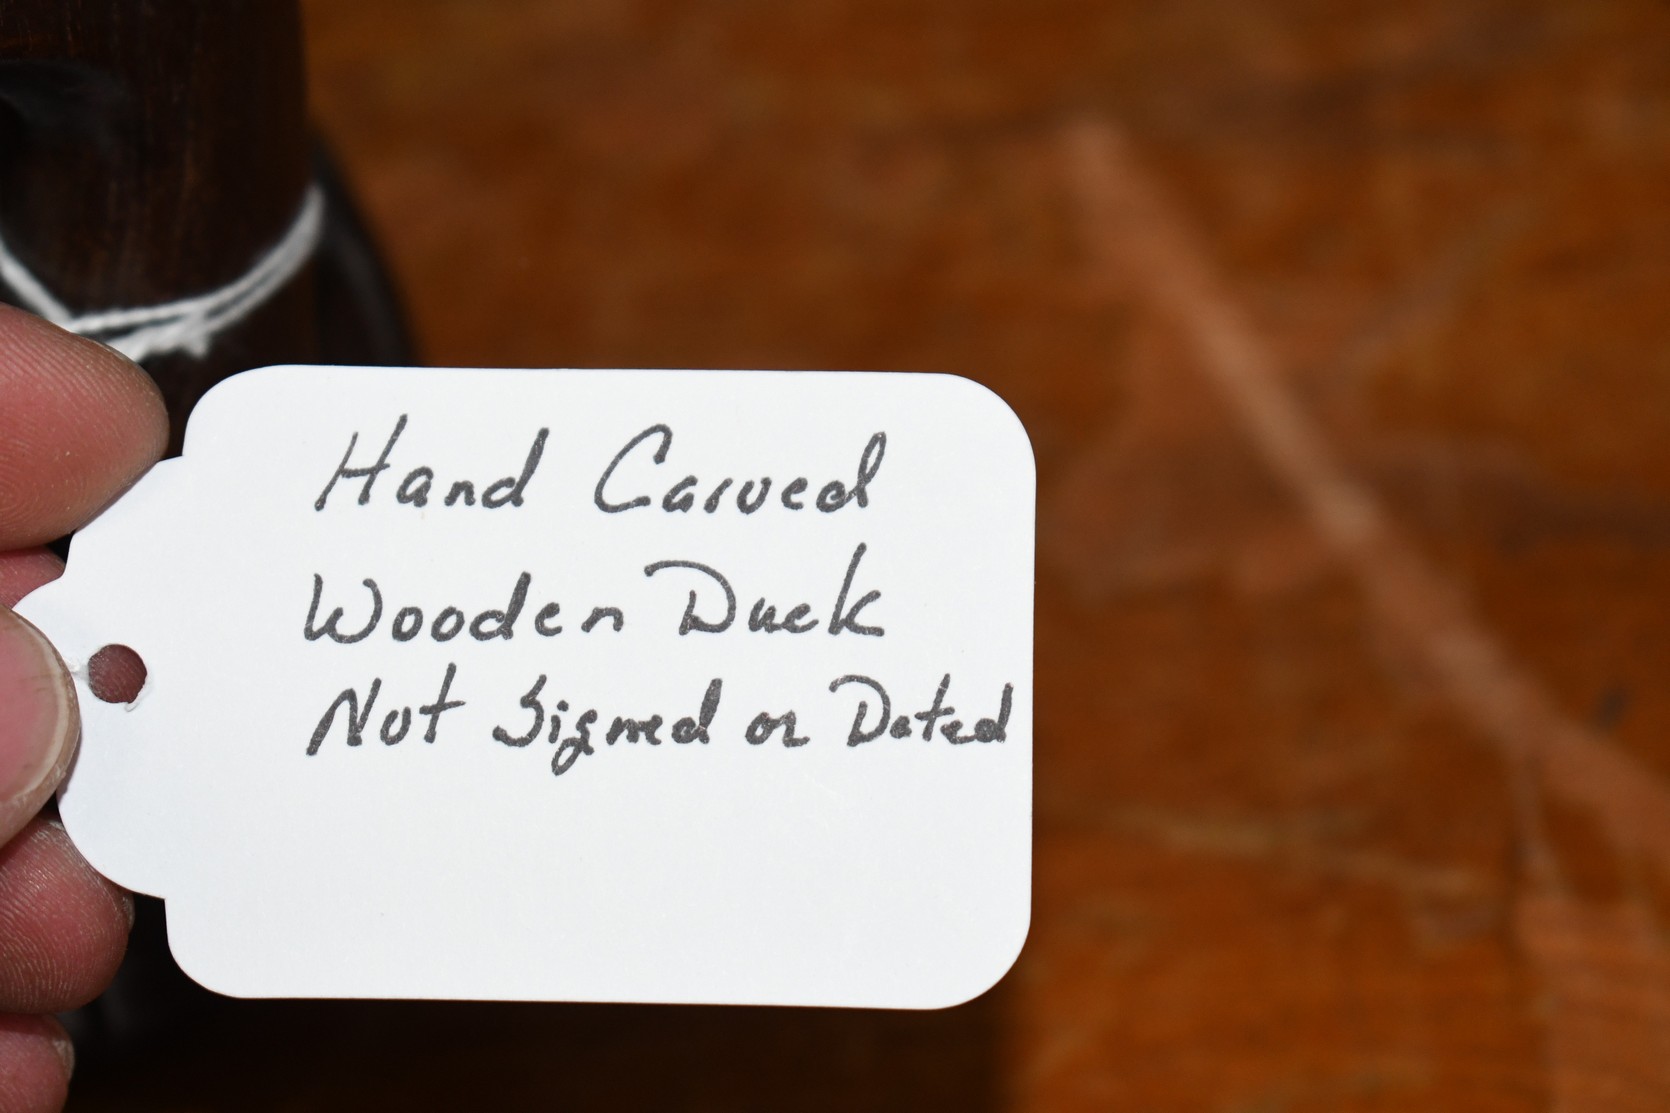 Hand Carved
Wooden Duck
Not Signed or Dated